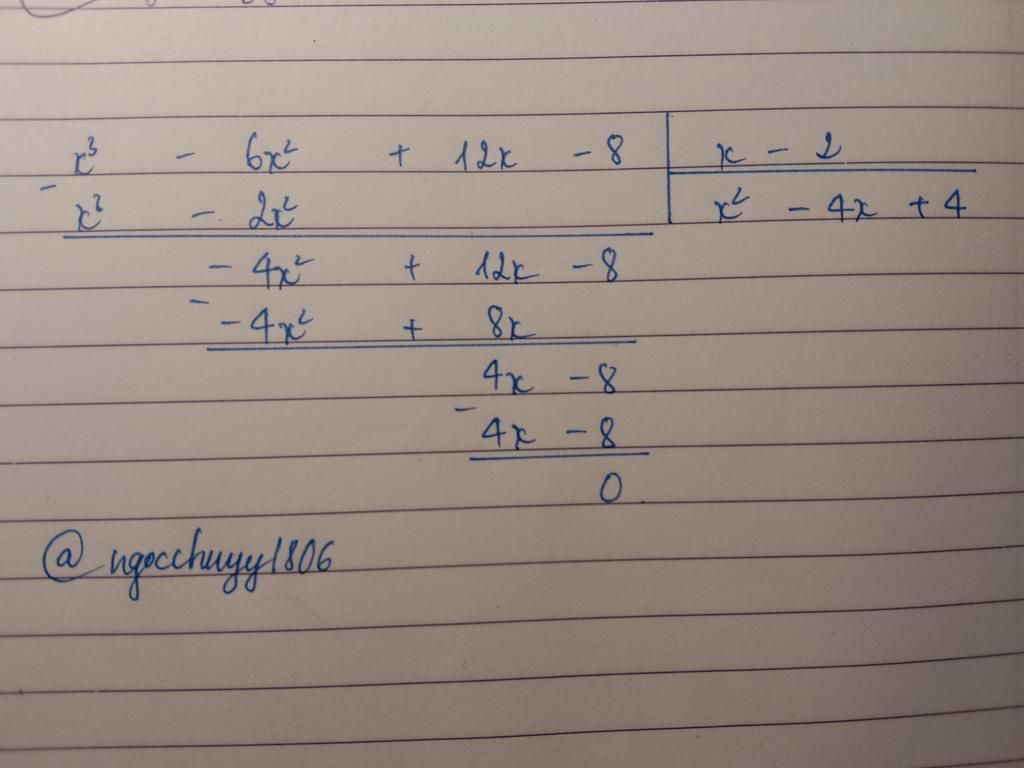 x³ - 6x² + 12x - 8 | x - 2
- x³ - 2x² | x² - 4x + 4
- 4x² + 12x - 8
- - 4x² + 8x
4x - 8
- 4x - 8
0
@ngocchuyy1806